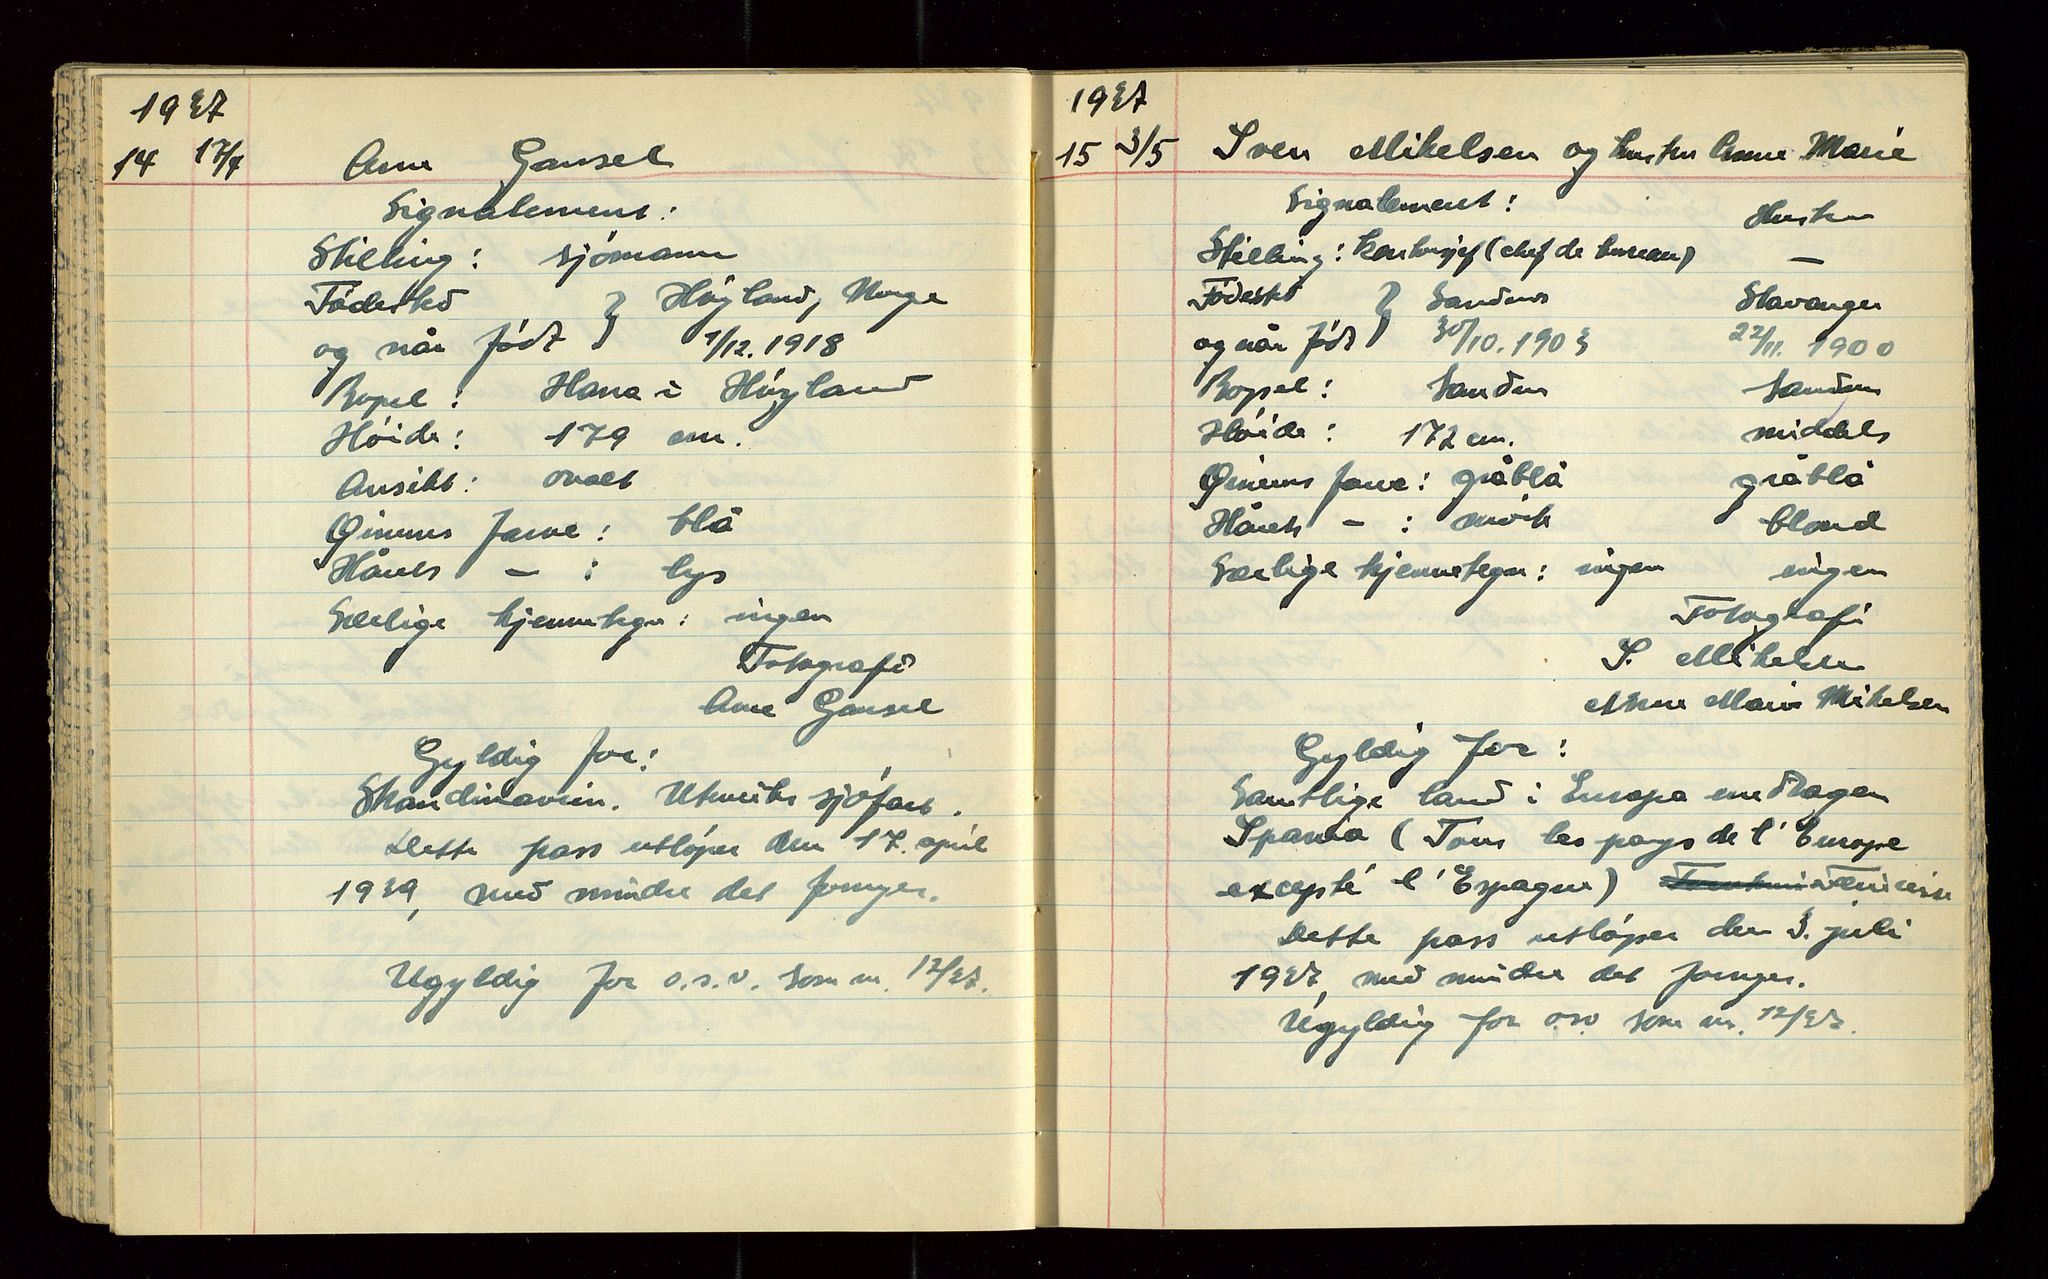 1937
14 17/4 Arne Gausel
Signalement:
Stilling: sjömann
Födested } Höyland, Norge
og når födt } 1/12. 1918
Bopel: Hana i Höyland
Höide: 179 cm.
Ansikt: ovalt
Öinens farve: blå
Hårets - : lys
Særlige kjennetegn: ingen
Fotografi
Arne Gausel
Gyldig for:
Skandinavien. Utenriks sjöfart.
Dette pass utlöper den 17. april
1939, med mindre det fornyes.
Ugyldig for o.s.v. som nr. 12/37.
1937
15 3/5 Sven Mikelsen og hustru Anne Marie
Signalement: Hustru
Stilling: kontorsjef (chef de bureau) —
Födested } Sandnes Stavanger
og når födt } 30/10. 1903 22/11. 1900
Bopel: Sandnes Sandnes
Höide: 172 cm. middels
Öinens farve: gråblå gråblå
Hårets - : mörk blond
Særlige kjennetegn: ingen ingen
Fotografi
S. Mikelsen
Anne Marie Mikelsen
Gyldig for:
Samtlige land i Europa undtagen
Spania (Tous les pays de l'Europe
excepté l'Espagne)
Dette pass utlöper den 3. juli
1937, med mindre det fornyes.
Ugyldig for osv som nr. 12/37.